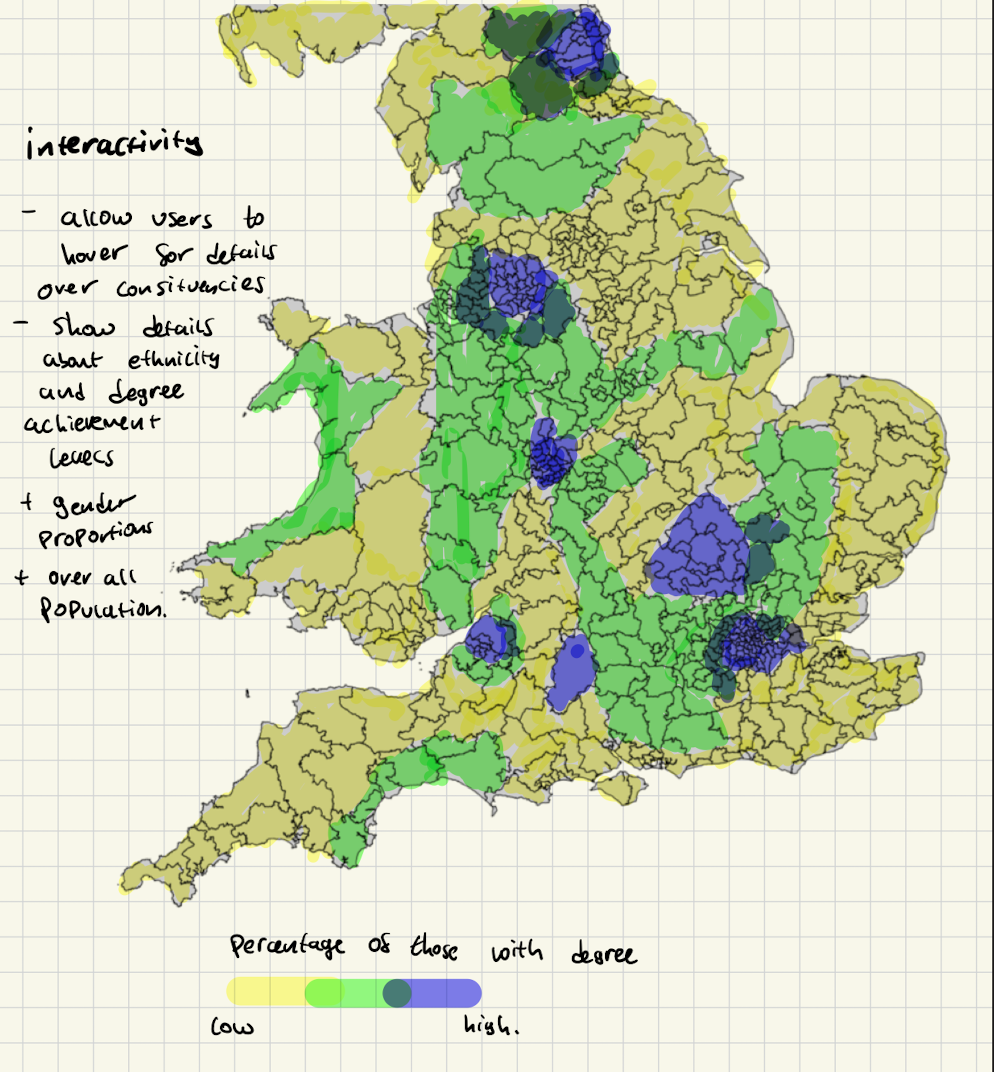 interactivity
- allow users to
hover for details
over consituencies
- Show details
about ethnicity
and degree
achievement
levels
+ gender
proportions
+ over all
population.
Percentage of those with degree
Low
high.